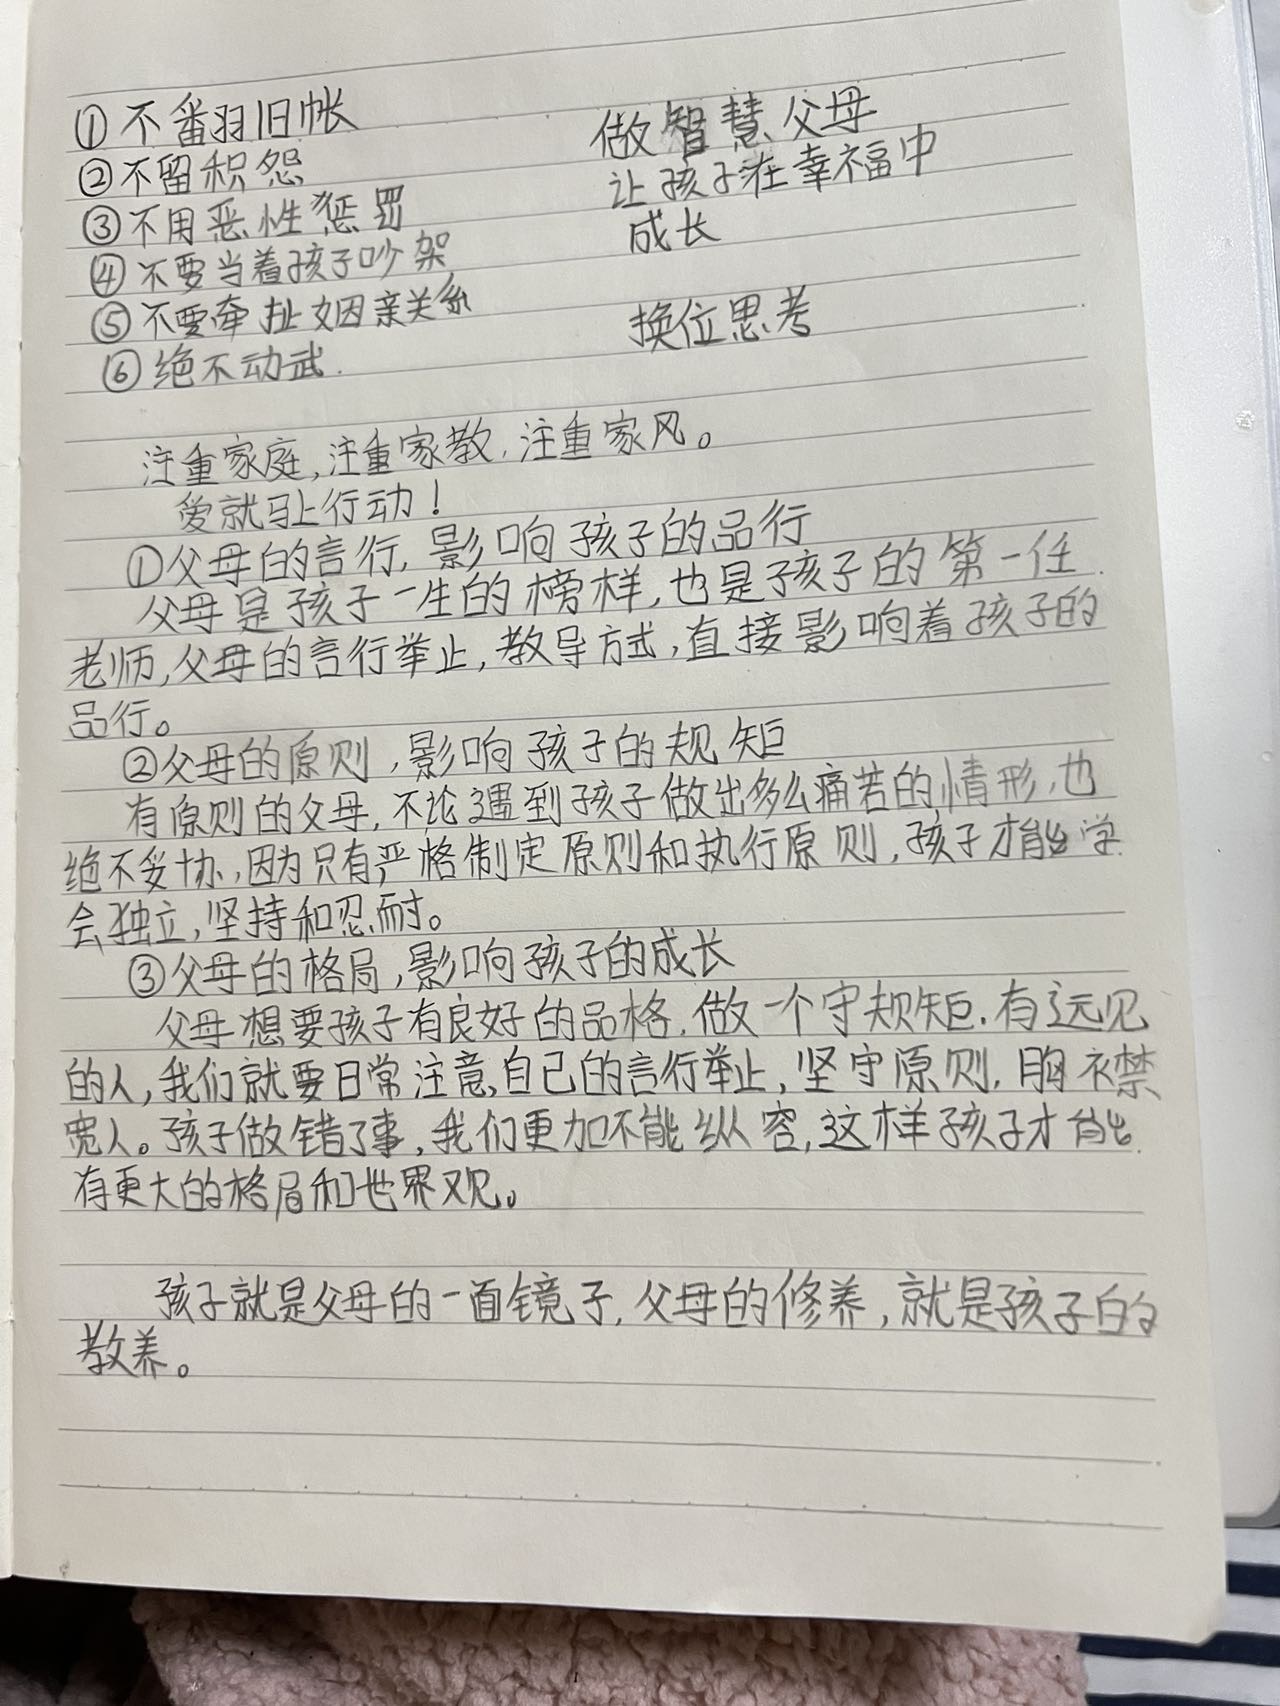 ①不翻旧帐
②不留积怨
③不用恶性惩罚
④不要当着孩子吵架
⑤不要牵扯姻亲关系
⑥绝不动武.
做智慧父母
让孩子在幸福中
成长
换位思考
注重家庭,注重家教,注重家风。
爱就马上行动!
①父母的言行,影响孩子的品行
父母是孩子一生的榜样,也是孩子的第一任
老师,父母的言行举止,教导方式,直接影响着孩子的
品行。
②父母的原则,影响孩子的规矩
有原则的父母,不论遇到孩子做出多么痛苦的情形,也
绝不妥协,因为只有严格制定原则和执行原则,孩子才能学
会独立,坚持和忍耐。
③父母的格局,影响孩子的成长
父母想要孩子有良好的品格,做一个守规矩.有远见
的人,我们就要日常注意自己的言行举止,坚守原则,胸襟
宽人。孩子做错了事,我们更加不能纵容,这样孩子才能
有更大的格局和世界观。
孩子就是父母的一面镜子,父母的修养,就是孩子的
教养。